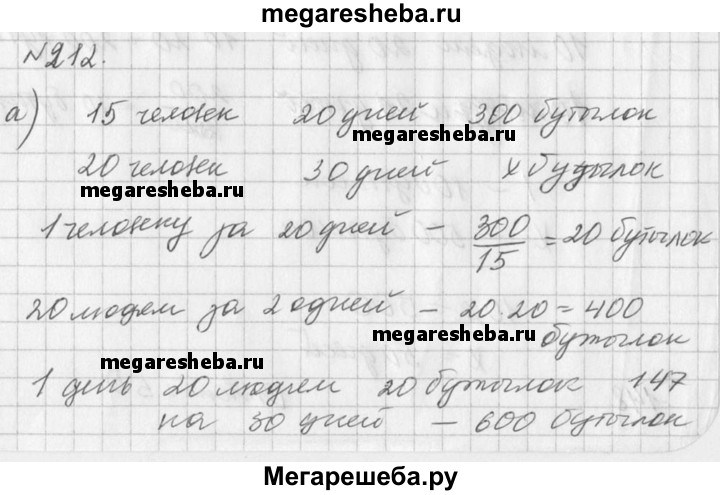 megaresheba.ru
№212.
а) 15 человек 20 дней 300 бутылок
megaresheba.ru
20 человек 30 дней x бутылок
megaresheba.ru
1 человеку за 20 дней - 300/15 = 20 бутылок
20 людям за 20 дней - 20·20=400
megaresheba.ru
бутылок
megaresheba.ru
1 день 20 людям 20 бутылок 147
на 30 дней - 600 бутылок
megaresheba.ru
Мегарешеба.ру